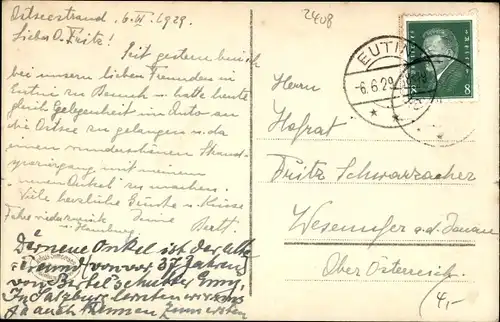 2408
Ostseestrand, 6. VI. 1929.
Lieber O. Fritz!
Seit gestern bin ich
bei unseren lieben Freunden in
Eutin zu Besuch u. hatte heute
gleich Gelegenheit im Auto an
die Ostsee zu gelangen u. da
einen wunderschönen Strand-
spaziergang mit meinem
"neuen Onkel" zu machen.
Viele herzliche Grüsse u. Küsse
Deine
Fahre
u. Hamburg.
Der neue Onkel ist der alte
Freund von vor 37 Jahren
von
In Salzburg lernten wir uns
ja auch kennen zum ersten
EUTIN
-6.6.29
8 8
Herrn
Hofrat
Fritz Schwarzacher
Wesenufer a. d. Donau
Ober Österreich.
4,-